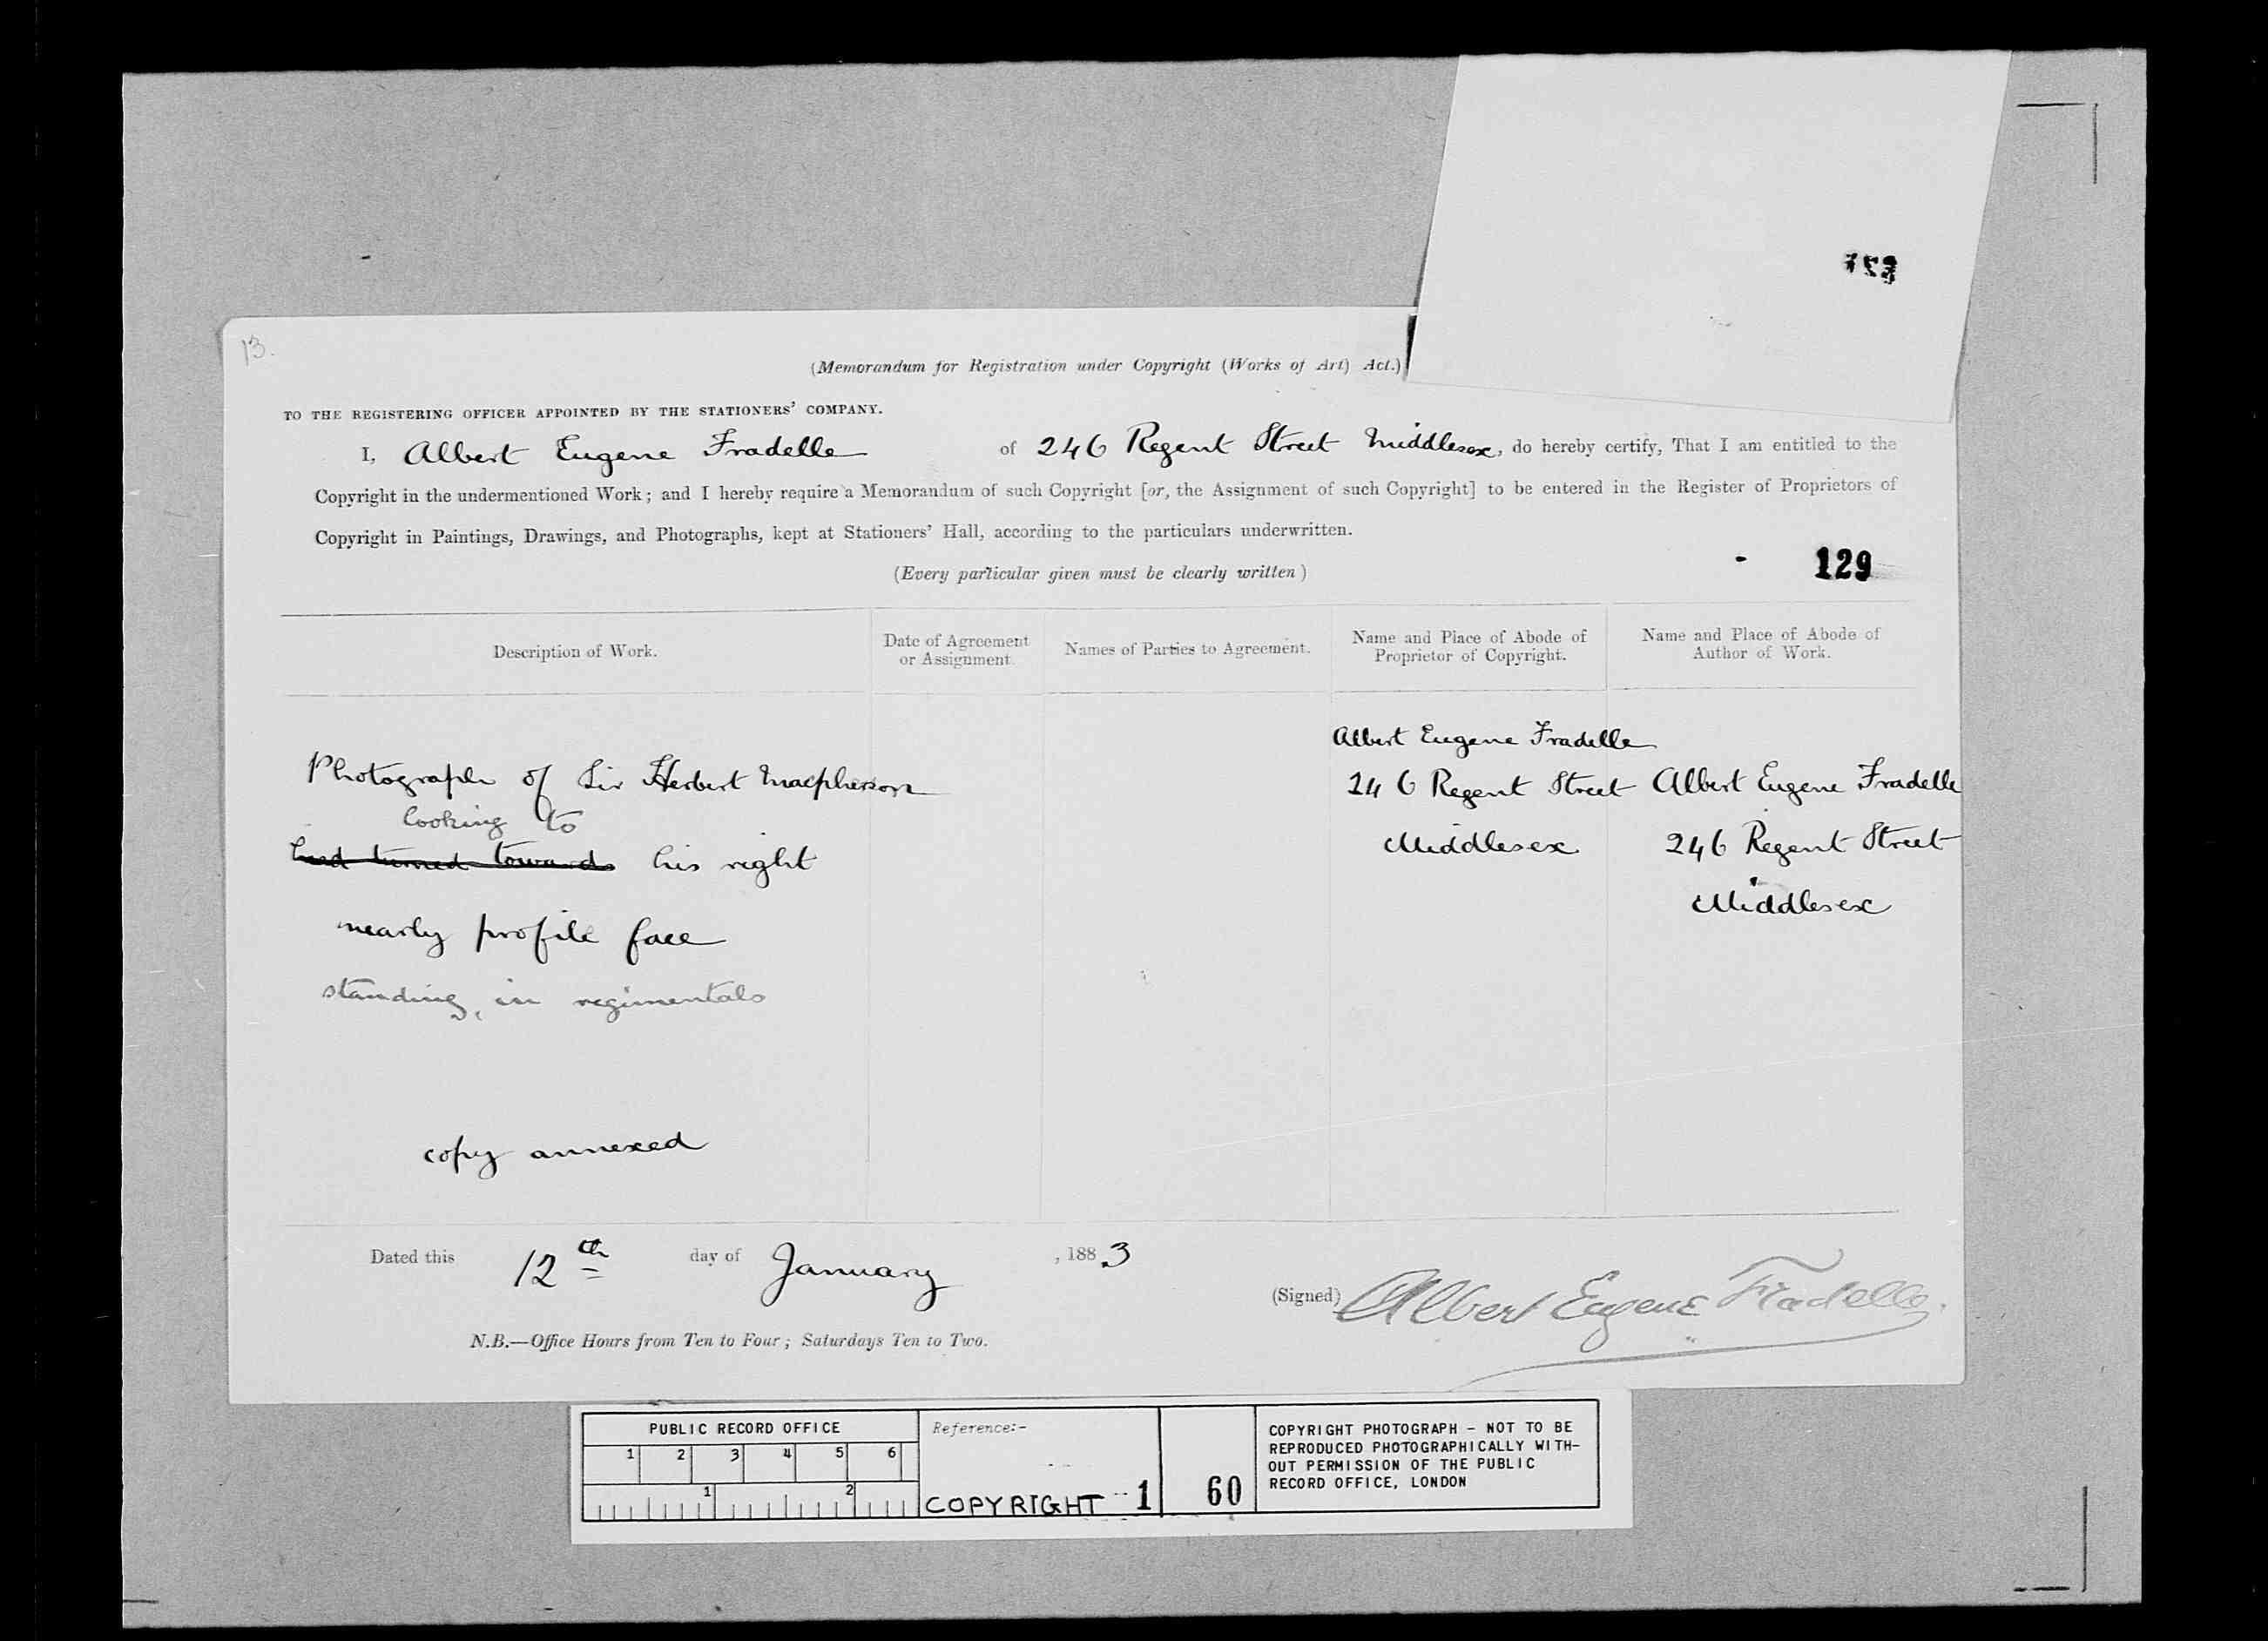 13.
(Memorandum for Registration under Copyright (Works of Art) Act.)
TO THE REGISTERING OFFICER APPOINTED BY THE STATIONERS' COMPANY.
I, Albert Eugene Fradelle of 246 Regent Street Middlesex, do hereby certify, That I am entitled to the
Copyright in the undermentioned Work; and I hereby require a Memorandum of such Copyright [or, the Assignment of such Copyright] to be entered in the Register of Proprietors of
Copyright in Paintings, Drawings, and Photographs, kept at Stationers' Hall, according to the particulars underwritten.
(Every particular given must be clearly written)
129
Description of Work.
Date of Agreement
or Assignment
Names of Parties to Agreement.
Name and Place of Abode of
Proprietor of Copyright.
Name and Place of Abode of
Author of Work.
Photograph of Sir Herbert Macpherson
looking to
head turned towards his right
nearly profile face
standing, in regimentals
copy annexed
Albert Eugene Fradelle
246 Regent Street
Middlesex
Albert Eugene Fradelle
246 Regent Street
Middlesex
Dated this 12th day of January, 1883
(Signed) Albert Eugene Fradelle.
N.B.—Office Hours from Ten to Four; Saturdays Ten to Two.
PUBLIC RECORD OFFICE
1 2 3 4 5 6
1 2
Reference:-
COPYRIGHT 1 60
COPYRIGHT PHOTOGRAPH - NOT TO BE
REPRODUCED PHOTOGRAPHICALLY WITH-
OUT PERMISSION OF THE PUBLIC
RECORD OFFICE, LONDON